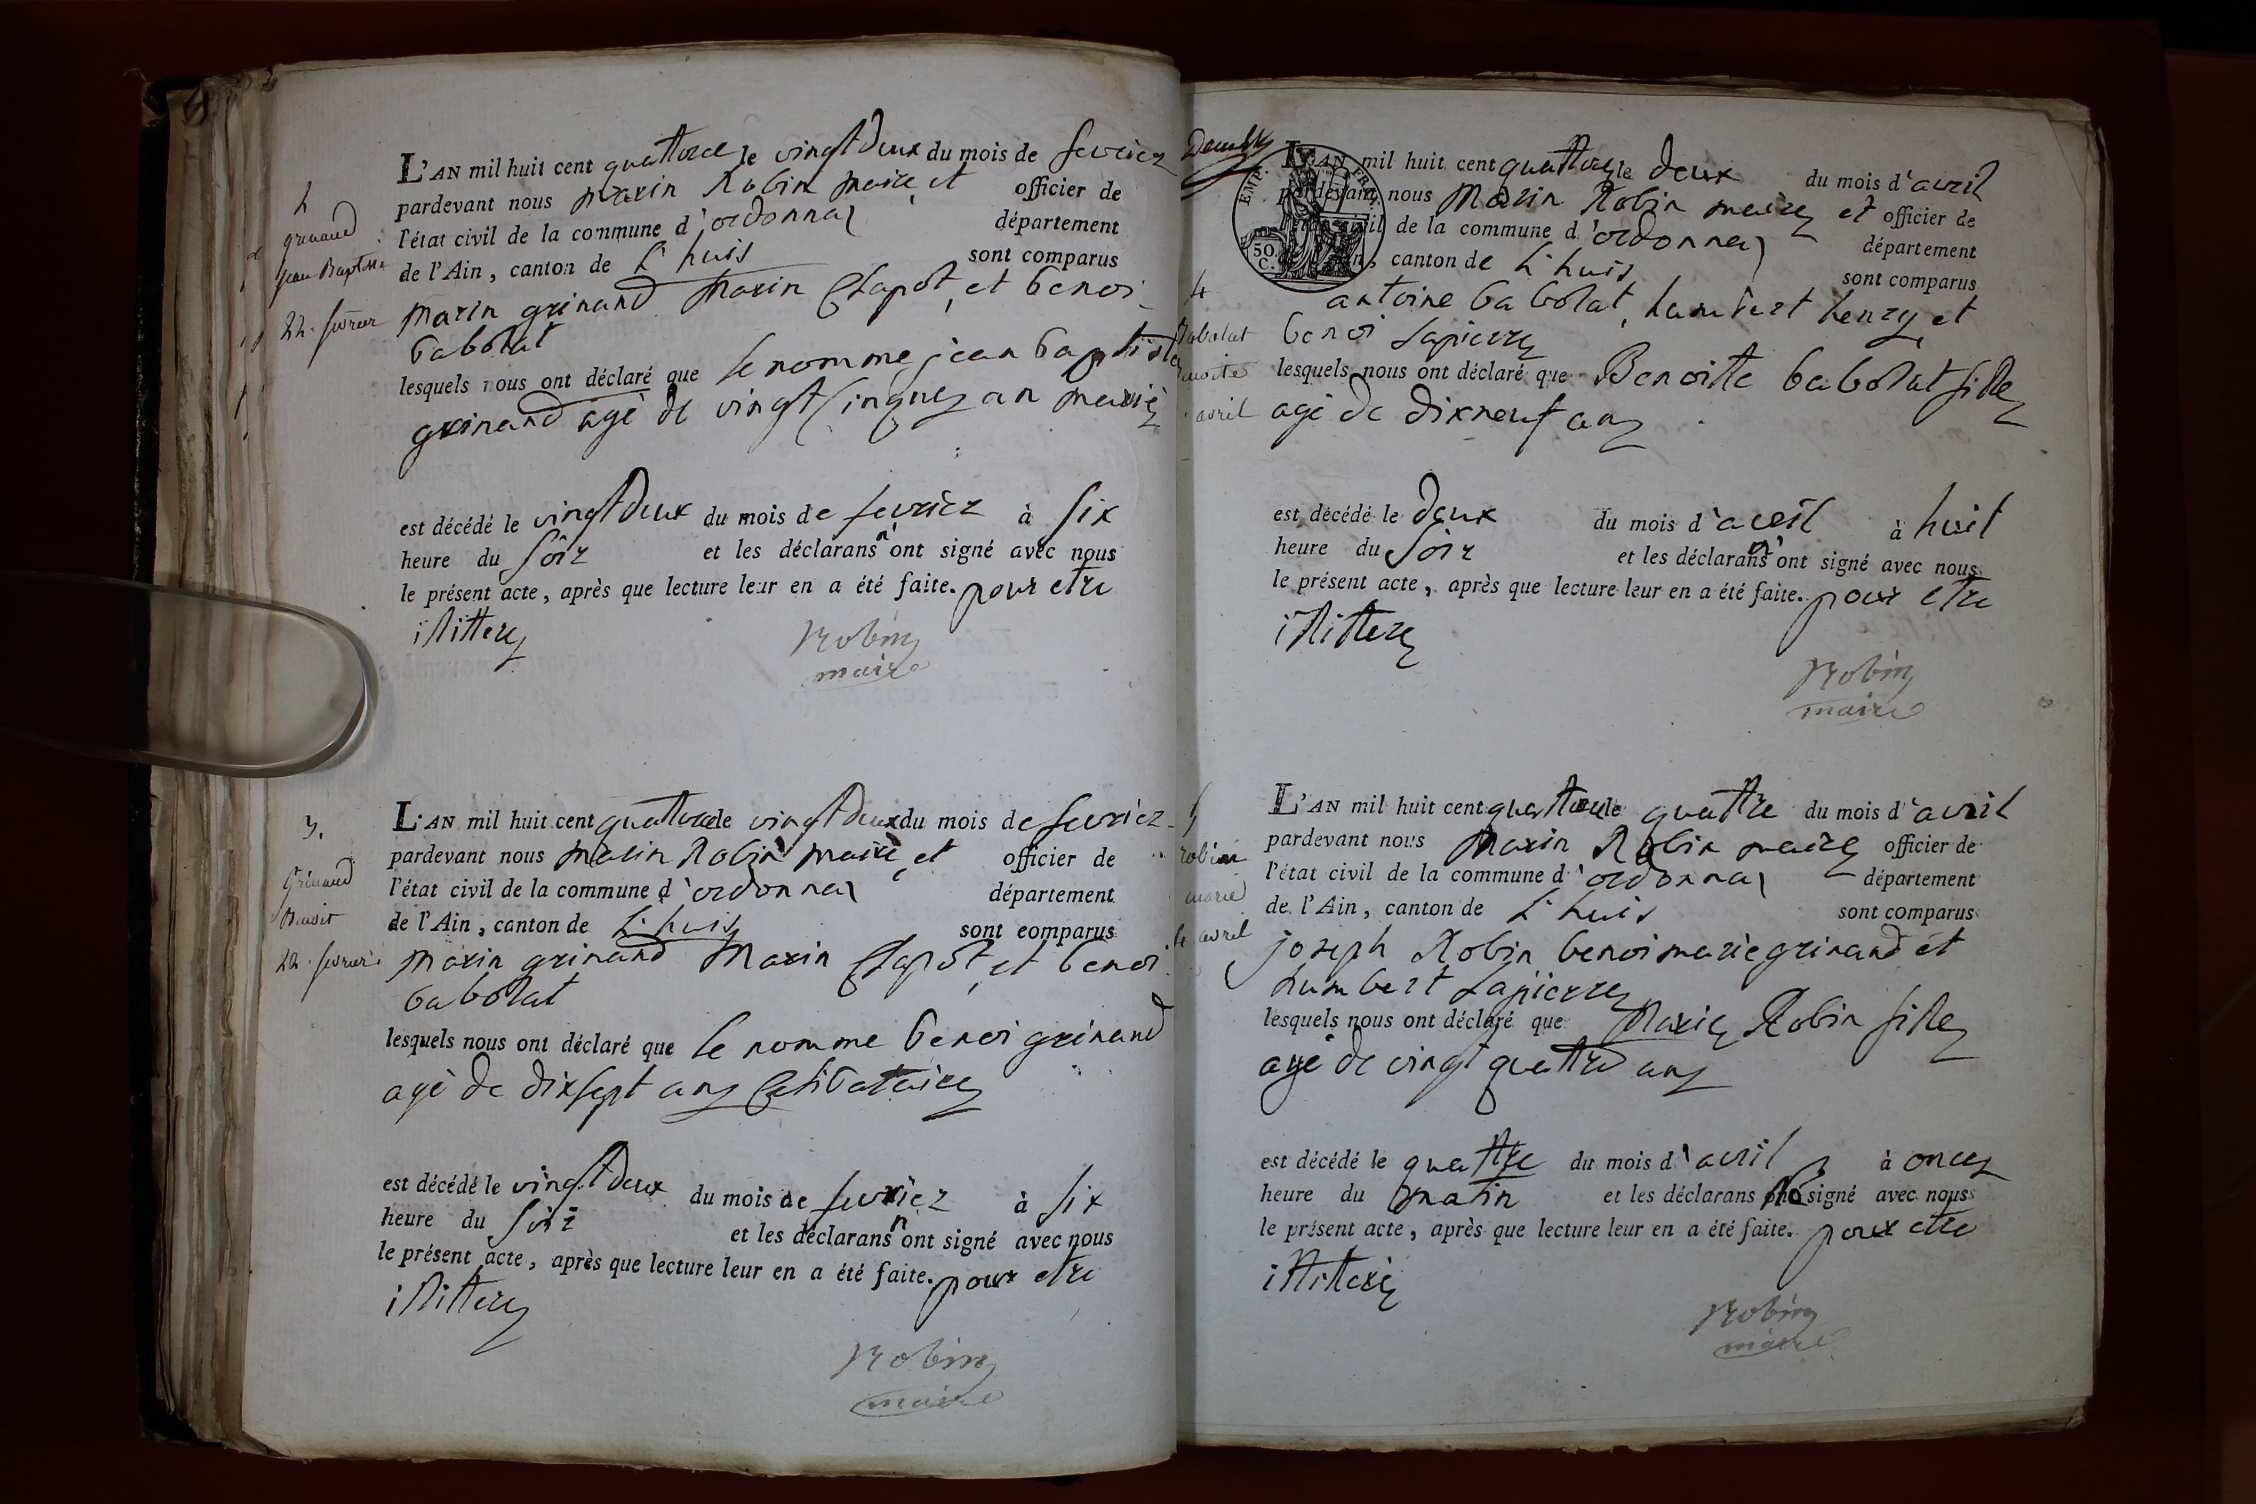 2
grinand
jean Baptiste
22 fevrier
L'AN mil huit cent quattorze le vingt deux du mois de fevrier
pardevant nous marin Robin maire et officier de
l'état civil de la commune d'ordonnaz département
de l'Ain, canton de L'huis sont comparus
marin grinand marin Chapot, et benoi
babolat
lesquels nous ont déclaré que le nomme jean baptiste
grinand agé de vingt cinque an marié
est décédé le vingt deux du mois de fevrier à six
heure du soir et les déclarans n'ont signé avec nous
le présent acte, après que lecture leur en a été faite. pour etre
illittere
Robin
maire
3.
Grinand
Benoit
22 fevrier
L'AN mil huit cent quattorze le vingt deux du mois de fevrier
pardevant nous marin Robin maire et officier de
l'état civil de la commune d'ordonnaz département
de l'Ain, canton de L'huis sont comparus
marin grinand Marin Chapot, et benoi
babolat
lesquels nous ont déclaré que le nomme benoi grinand
agé de dix sept ans Celibataire
est décédé le vingt deux du mois de fevrier à six
heure du soir et les déclarans n'ont signé avec nous
le présent acte, après que lecture leur en a été faite. pour etre
illittere
Robin
maire
EMP. FRAN.
50 C.
4
babolat
benoite
avril
L'AN mil huit cent quattorze le deux du mois d'avril
pardevant nous Marin Robin maire et officier de
l'état civil de la commune d'ordonnaz département
de l'Ain, canton de L'huis sont comparus
antoine babolat, humbert henry et
benoi Lapierre
lesquels nous ont déclaré que Benoitte babolat fille
agé de dixneuf ans
est décédé le deux du mois d'avril à huit
heure du soir et les déclarans n'ont signé avec nous
le présent acte, après que lecture leur en a été faite. pour etre
illittere
Robin
maire
5
robin
marie
4 avril
L'AN mil huit cent quattorze le quattre du mois d'avril
pardevant nous Marin Robin maire officier de
l'état civil de la commune d'ordonnaz département
de l'Ain, canton de L'huis sont comparus
joseph Robin benoi marie grinand et
humbert Lapierre
lesquels nous ont déclaré que Marie Robin fille
agé de vingt quattre ans
est décédé le quattre du mois d'avril à once
heure du matin et les déclarans signé avec nous
le présent acte, après que lecture leur en a été faite. pour etre
illitteré
Robin
maire